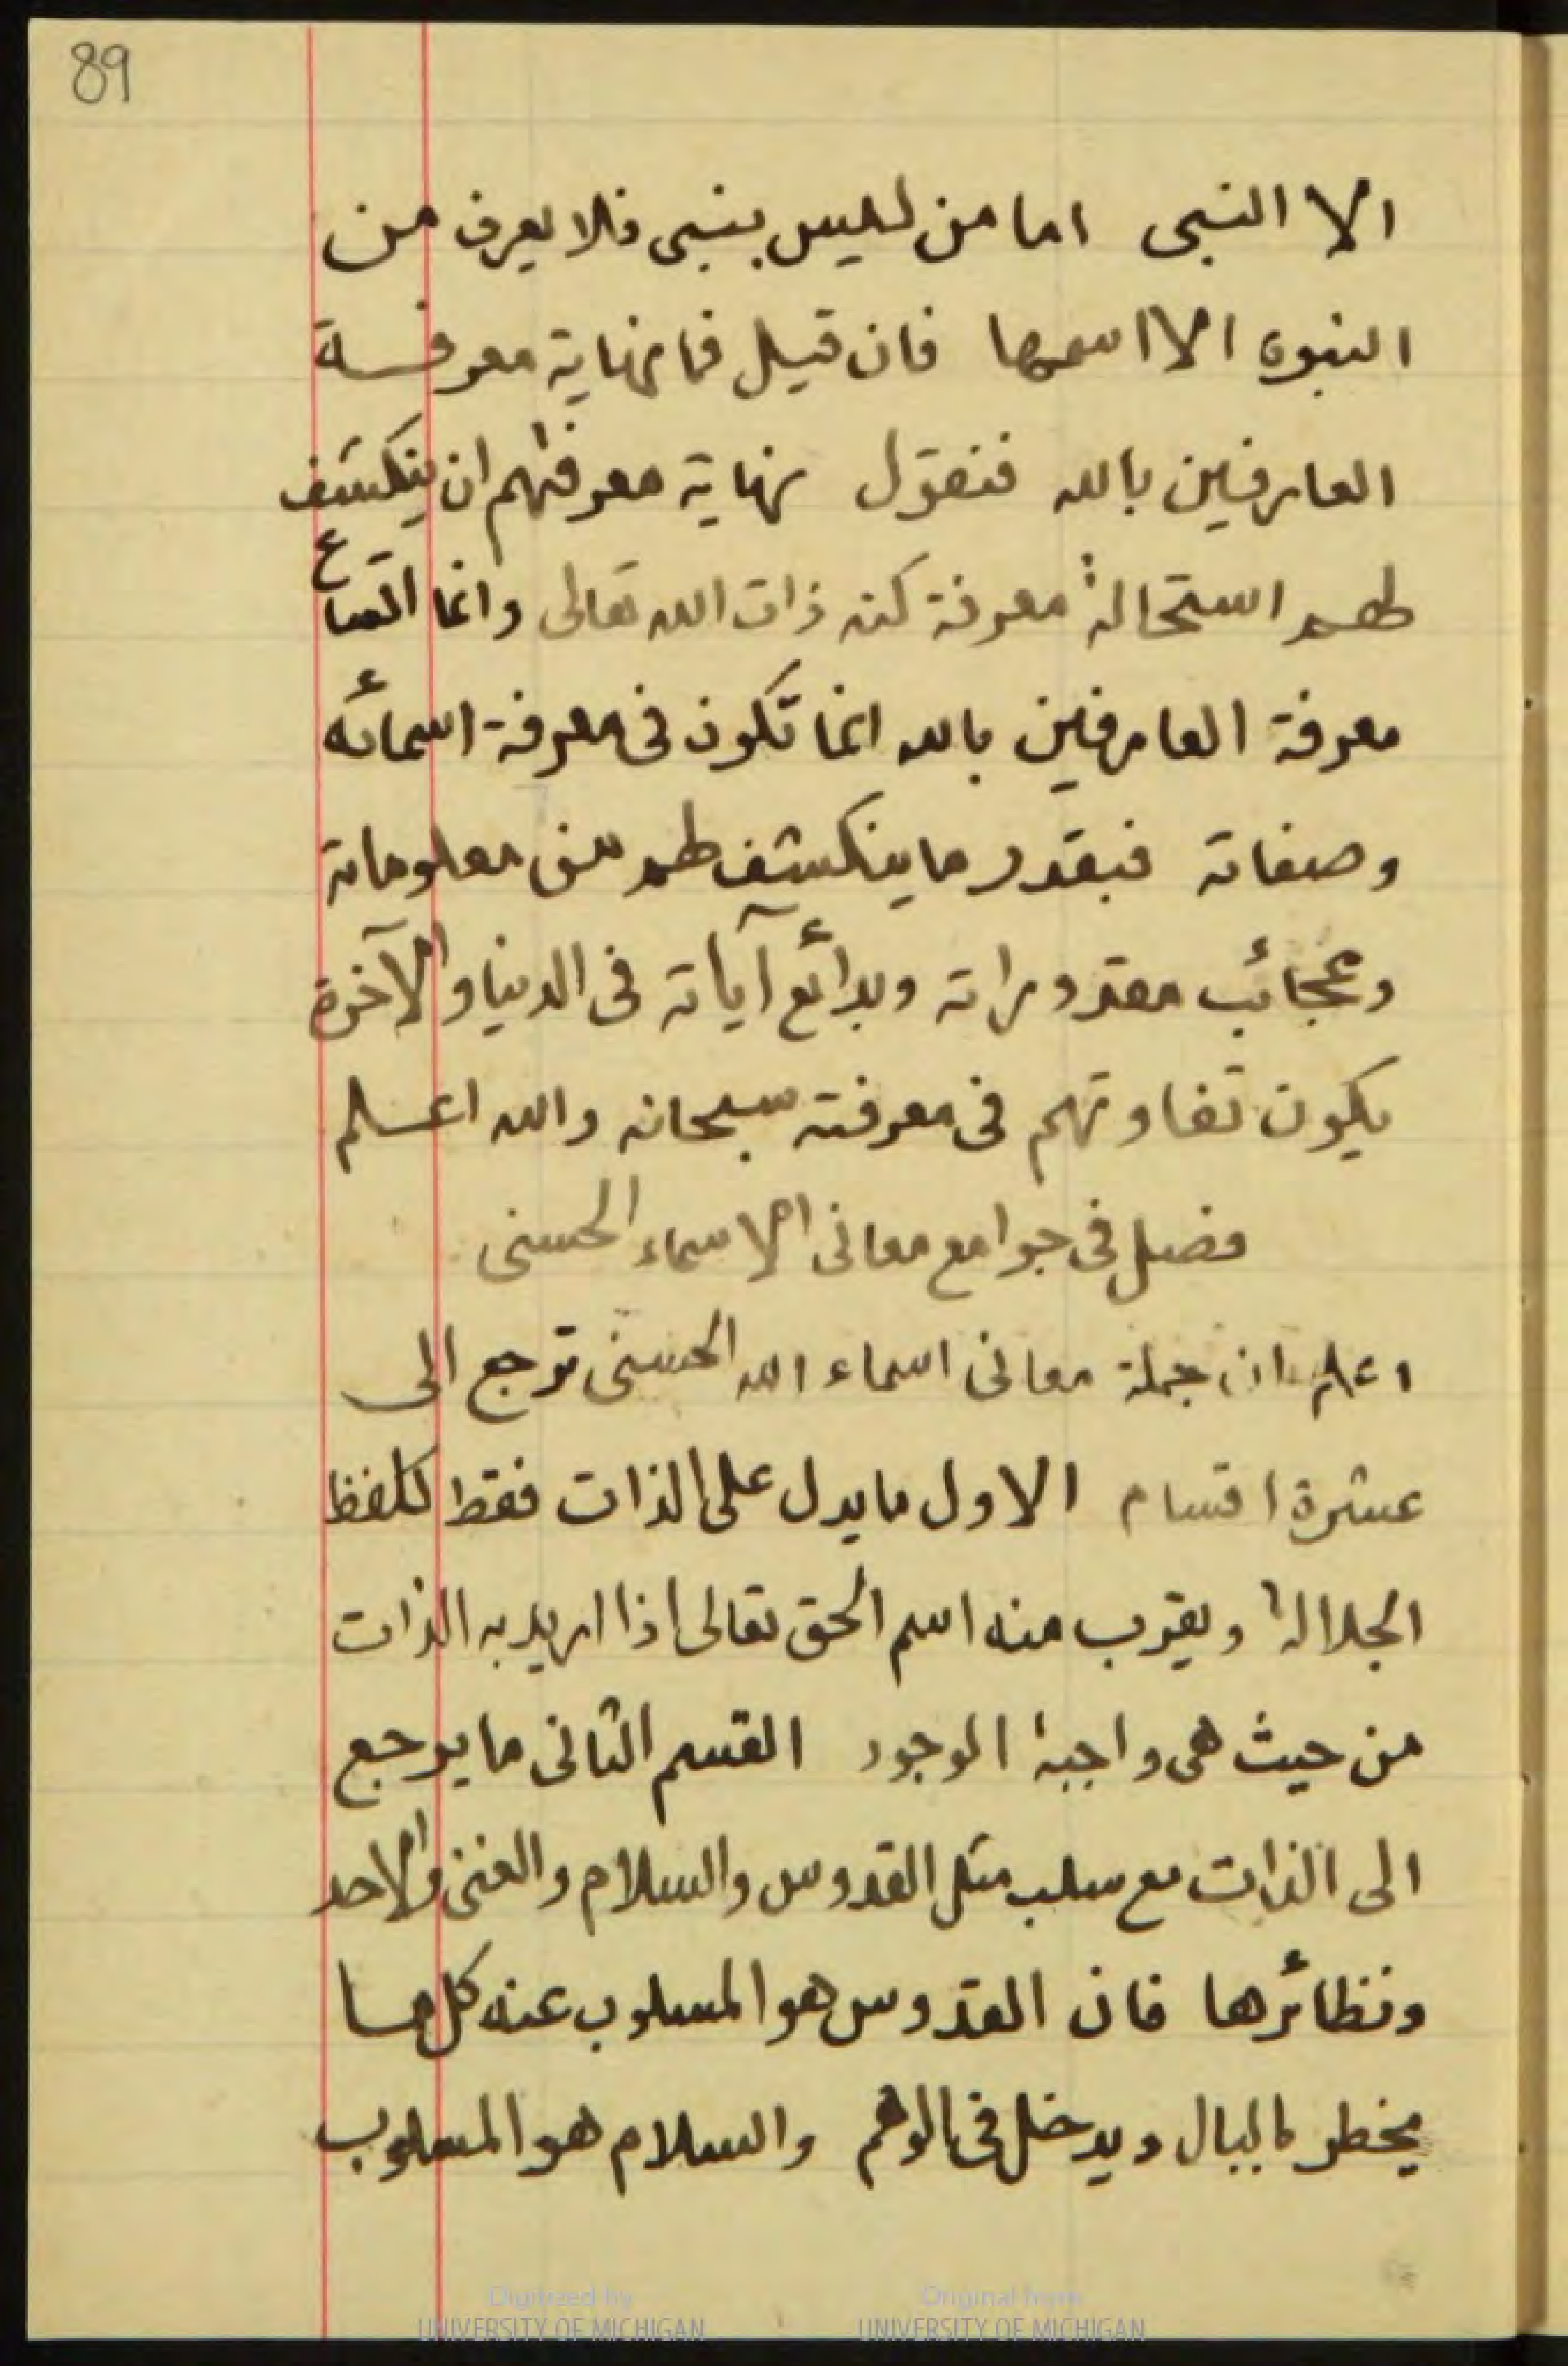 89
الا النبى اما من ليس بنبى فلا يعرف من
النبوة الا اسمها فان قيل فما نهاية معرفة
العارفين بالله فنقول نهاية معرفتهم ان ينكشف
لهم استحالة معرفة كنه ذات الله تعالى وانما اتساع
معرفة العارفين بالله انما تكون فى معرفة اسمائه
وصفاته فبقدر ما ينكشف لهم من معلوماته
وعجائب مقدوراته وبدائع آياته فى الدنيا والآخرة
يكون تفاوتهم فى معرفته سبحانه والله اعلم
فصل فى جوامع معانى الاسماء الحسنى
اعلم ان جملة معانى اسماء الله الحسنى ترجع الى
عشرة اقسام الاول ما يدل على الذات فقط كلفظ
الجلالة ويقرب منه اسم الحق تعالى اذا اريد به الذات
من حيث هى واجبة الوجود القسم الثانى ما يرجع
الى الذات مع سلب مثل القدوس والسلام والغنى والاحد
ونظائرها فان القدوس هو المسلوب عنه كل ما
يخطر بالبال ويدخل فى الوهم والسلام هو المسلوب
Digitized by
UNIVERSITY OF MICHIGAN
Original from
UNIVERSITY OF MICHIGAN